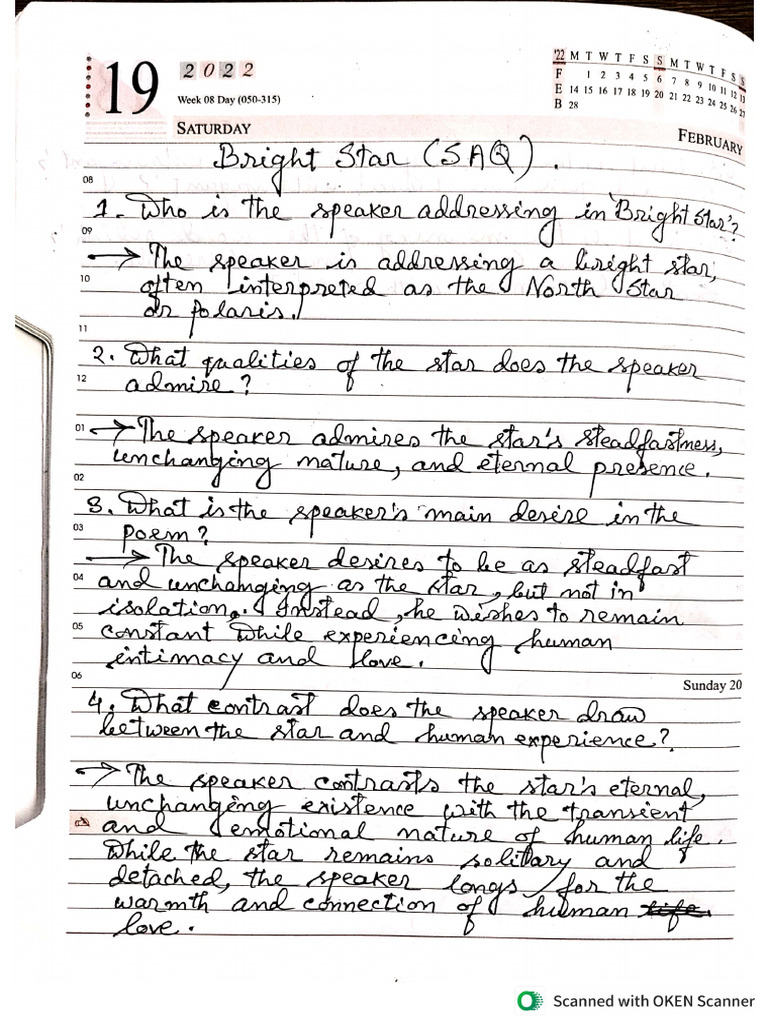 19 2022 '22 M T W T F S S M T W T F S S
F 1 2 3 4 5 6 7 8 9 10 11 12 13
E 14 15 16 17 18 19 20 21 22 23 24 25 26 27
B 28
Week 08 Day (050-315)
SATURDAY FEBRUARY
Bright Star (SAQ).
08
1. Who is the speaker addressing in 'Bright Star'?
09
→ The speaker is addressing a bright star,
10 often interpreted as the North Star
or Polaris.
11
2. What qualities of the star does the speaker
12 admire?
01 → The speaker admires the star's steadfastness,
unchanging nature, and eternal presence.
02
3. What is the speaker's main desire in the
03 poem?
→ The speaker desires to be as steadfast
04 and unchanging as the star, but not in
isolation. Instead, he wishes to remain
05 constant while experiencing human
intimacy and love.
06 Sunday 20
4. What contrast does the speaker draw
between the star and human experience?
→ The speaker contrasts the star's eternal,
unchanging existence with the transient
and emotional nature of human life.
While the star remains solitary and
detached, the speaker longs for the
warmth and connection of human life.
love.
Scanned with OKEN Scanner